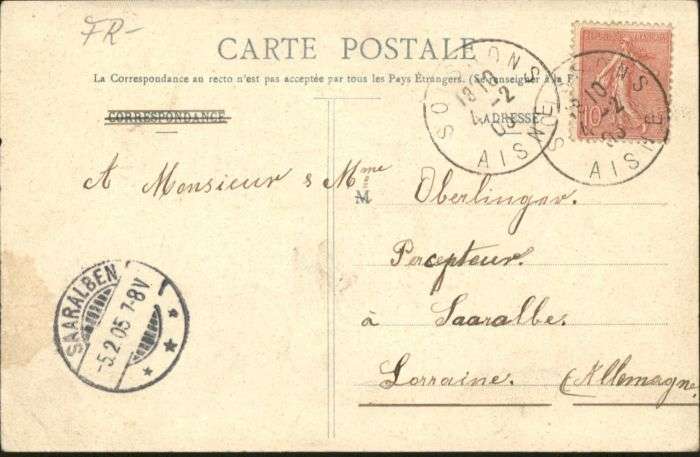 FR-
CARTE POSTALE
La Correspondance au recto n'est pas acceptée par tous les Pays Étrangers. (Se renseigner à la P
CORRESPONDANCE
ADRESSE
A Monsieur & Mme Oberlinger.
M
Percepteur.
à Saaralbe.
Lorraine. (Allemagne
SOISSONS
18 10
4-2
05
AISNE
SOISSONS
18 10
4-2
05
AISNE
RÉPUBLIQUE FRANÇAISE
10
SAARALBEN
-5.2.05.7-8V